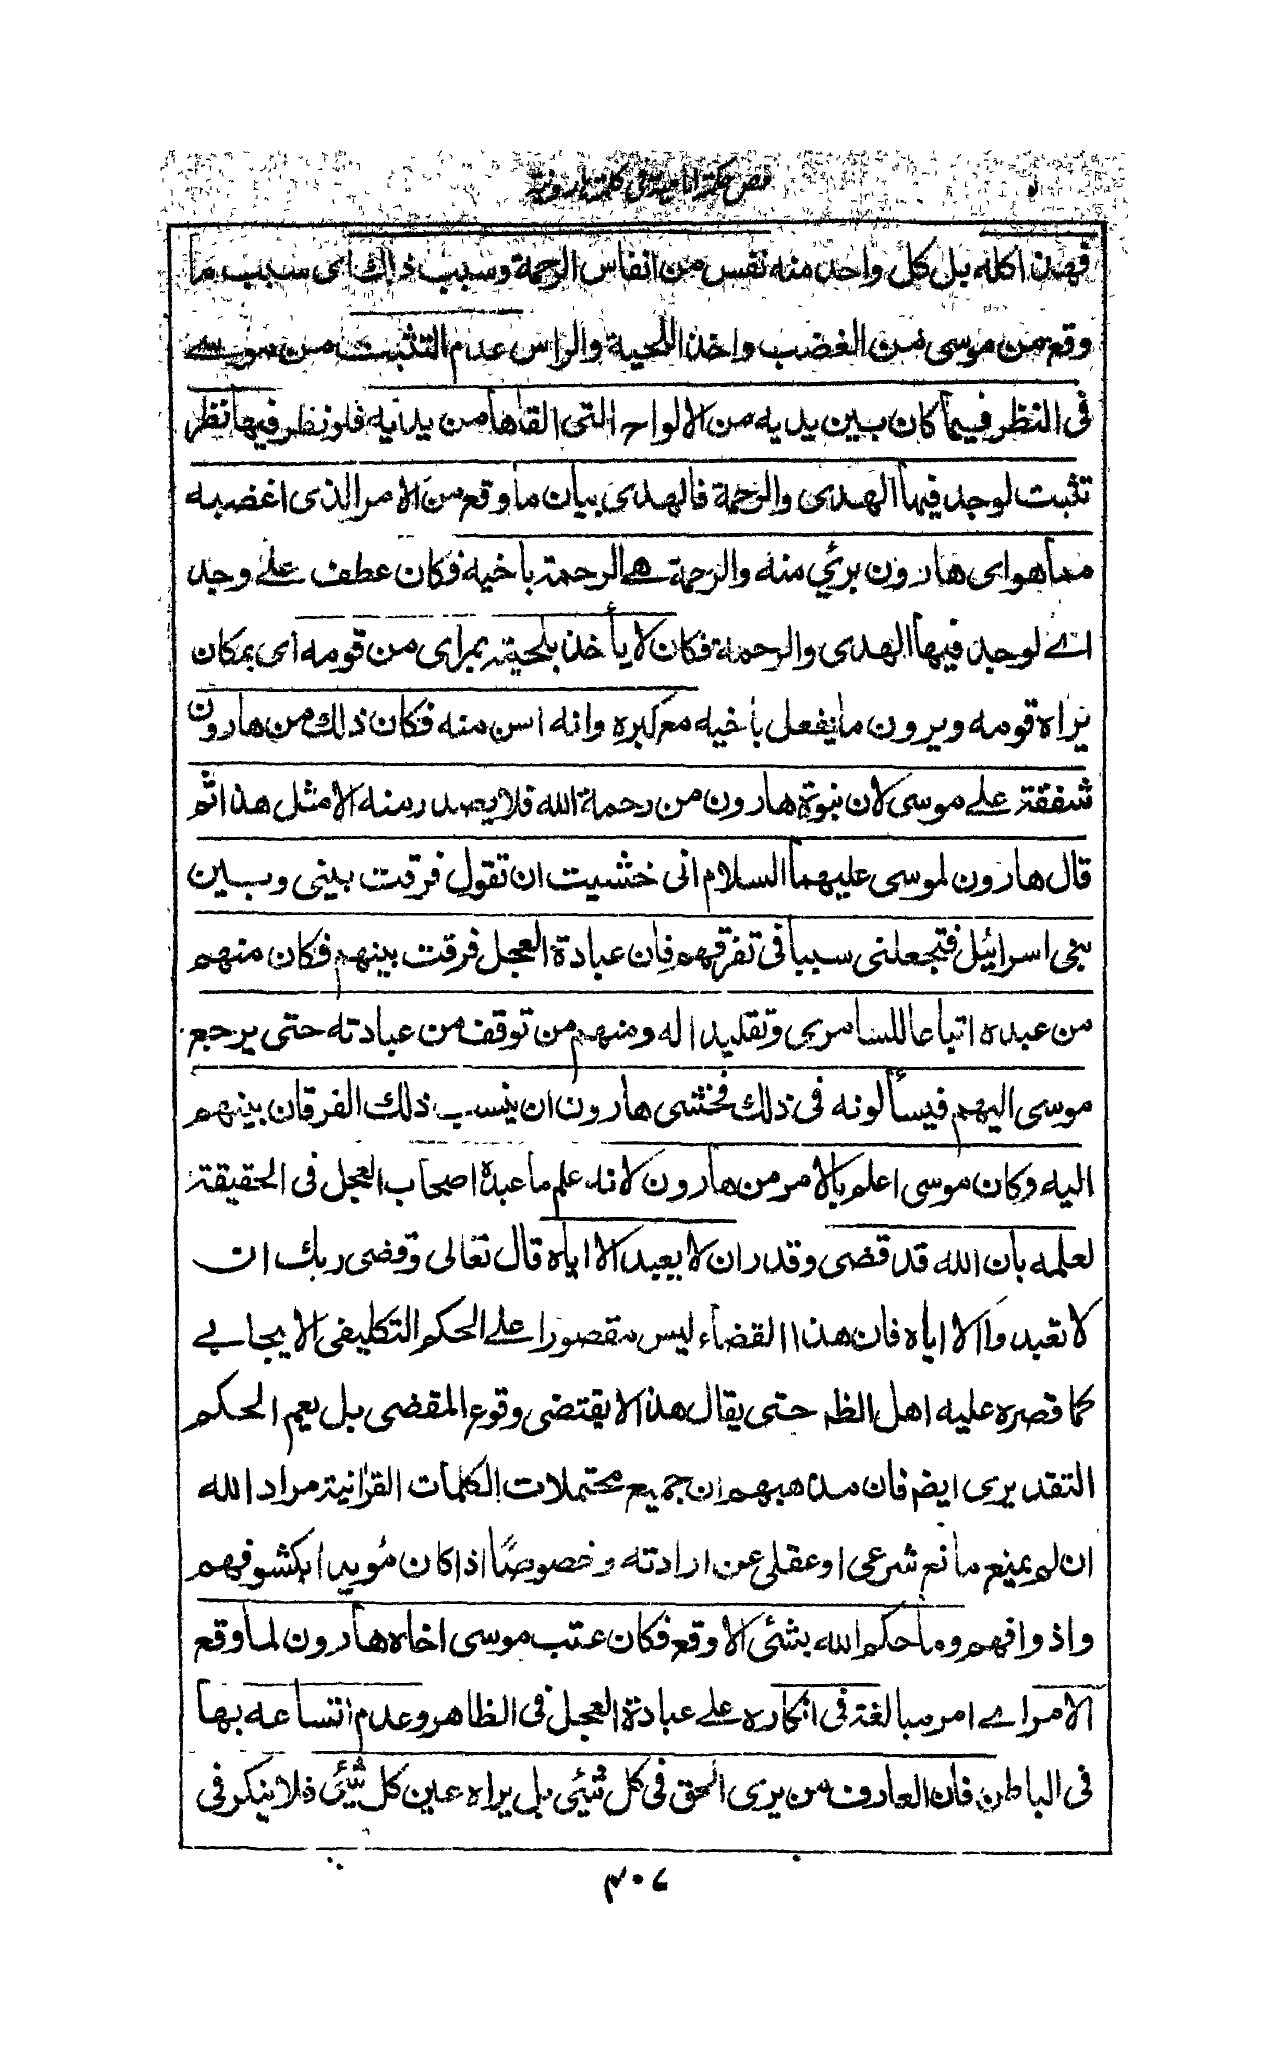 فص حكمة امامية في كلمة هارونية
فهذا كله بل كل واحد منه نفس من انفاس الرحمة وسبب ذلك اى سبب ما
وقع من موسى من الغضب واخذ اللحية والراس عدم التثبت من موسے
فى النظر فيما كان بين يديه من الالواح التى القاها من يديه فلو نظر فيها نظر
تثبت لوجد فيها الهدى والرحمة فالهدى بيان ما وقع من الامر الذى اغضبه
مما هو اى هارون برئي منه والرحمة هے الرحمة باخيه فكان عطف علے وجد
اے لوجد فيها الهدى والرحمة فكان لا يأخذ بلحيته بمراى من قومه اى بمكان
يراه قومه ويرون ما يفعل بأخيه مع كبره وانه اسن منه فكان ذلك من هارون
شفقة علے موسى لان نبوة هارون من رحمة الله فلا يصدر منه الا مثل هذا ثم
قال هارون لموسى عليهما السلام انى خشيت ان تقول فرقت بينى وبين
بنى اسرائيل فتجعلنى سببا فى تفرقهم فان عبادة العجل فرقت بينهم فكان منهم
من عبده اتباعا للسامرى وتقليدا له ومنهم من توقف من عبادته حتى يرجع
موسى اليهم فيسألونه فى ذلك فخشى هارون ان ينسب ذلك الفرقان بينهم
اليه وكان موسى اعلم بالامر من هارون لانه علم ما عبده اصحاب العجل فى الحقيقة
لعلمه بأن الله قد قضى وقدر ان لا يعبد الا اياه قال تعالى وقضى ربك ان
لا تعبدوا الا اياه فان هذا القضاء ليس مقصورا علے الحكم التكليفى الايجابے
كما قصره عليه اهل الظه حتى يقال هذا لا يقتضى وقوع المقضى بل يعم الحكم
التقديرى ايضه فان مذهبهم ان جميع محتملات الكلمات القرانية مراد الله
ان لم يمنع مانع شرعى او عقلى عن ارادته وخصوصًا اذا كان مُويدا بكشوفهم
واذواقهم وما حكم الله بشئى الا وقع فكان عتب موسى اخاه هارون لما وقع
الامر اے امر مبالغة فى انكاره علے عبادة العجل فى الظاهر وعدم اتساعه بها
فى الباطن فان العارف من يرى الحق فى كل شئي بل يراه عين كل شيئى فلا ينكر فى
٣٠٧